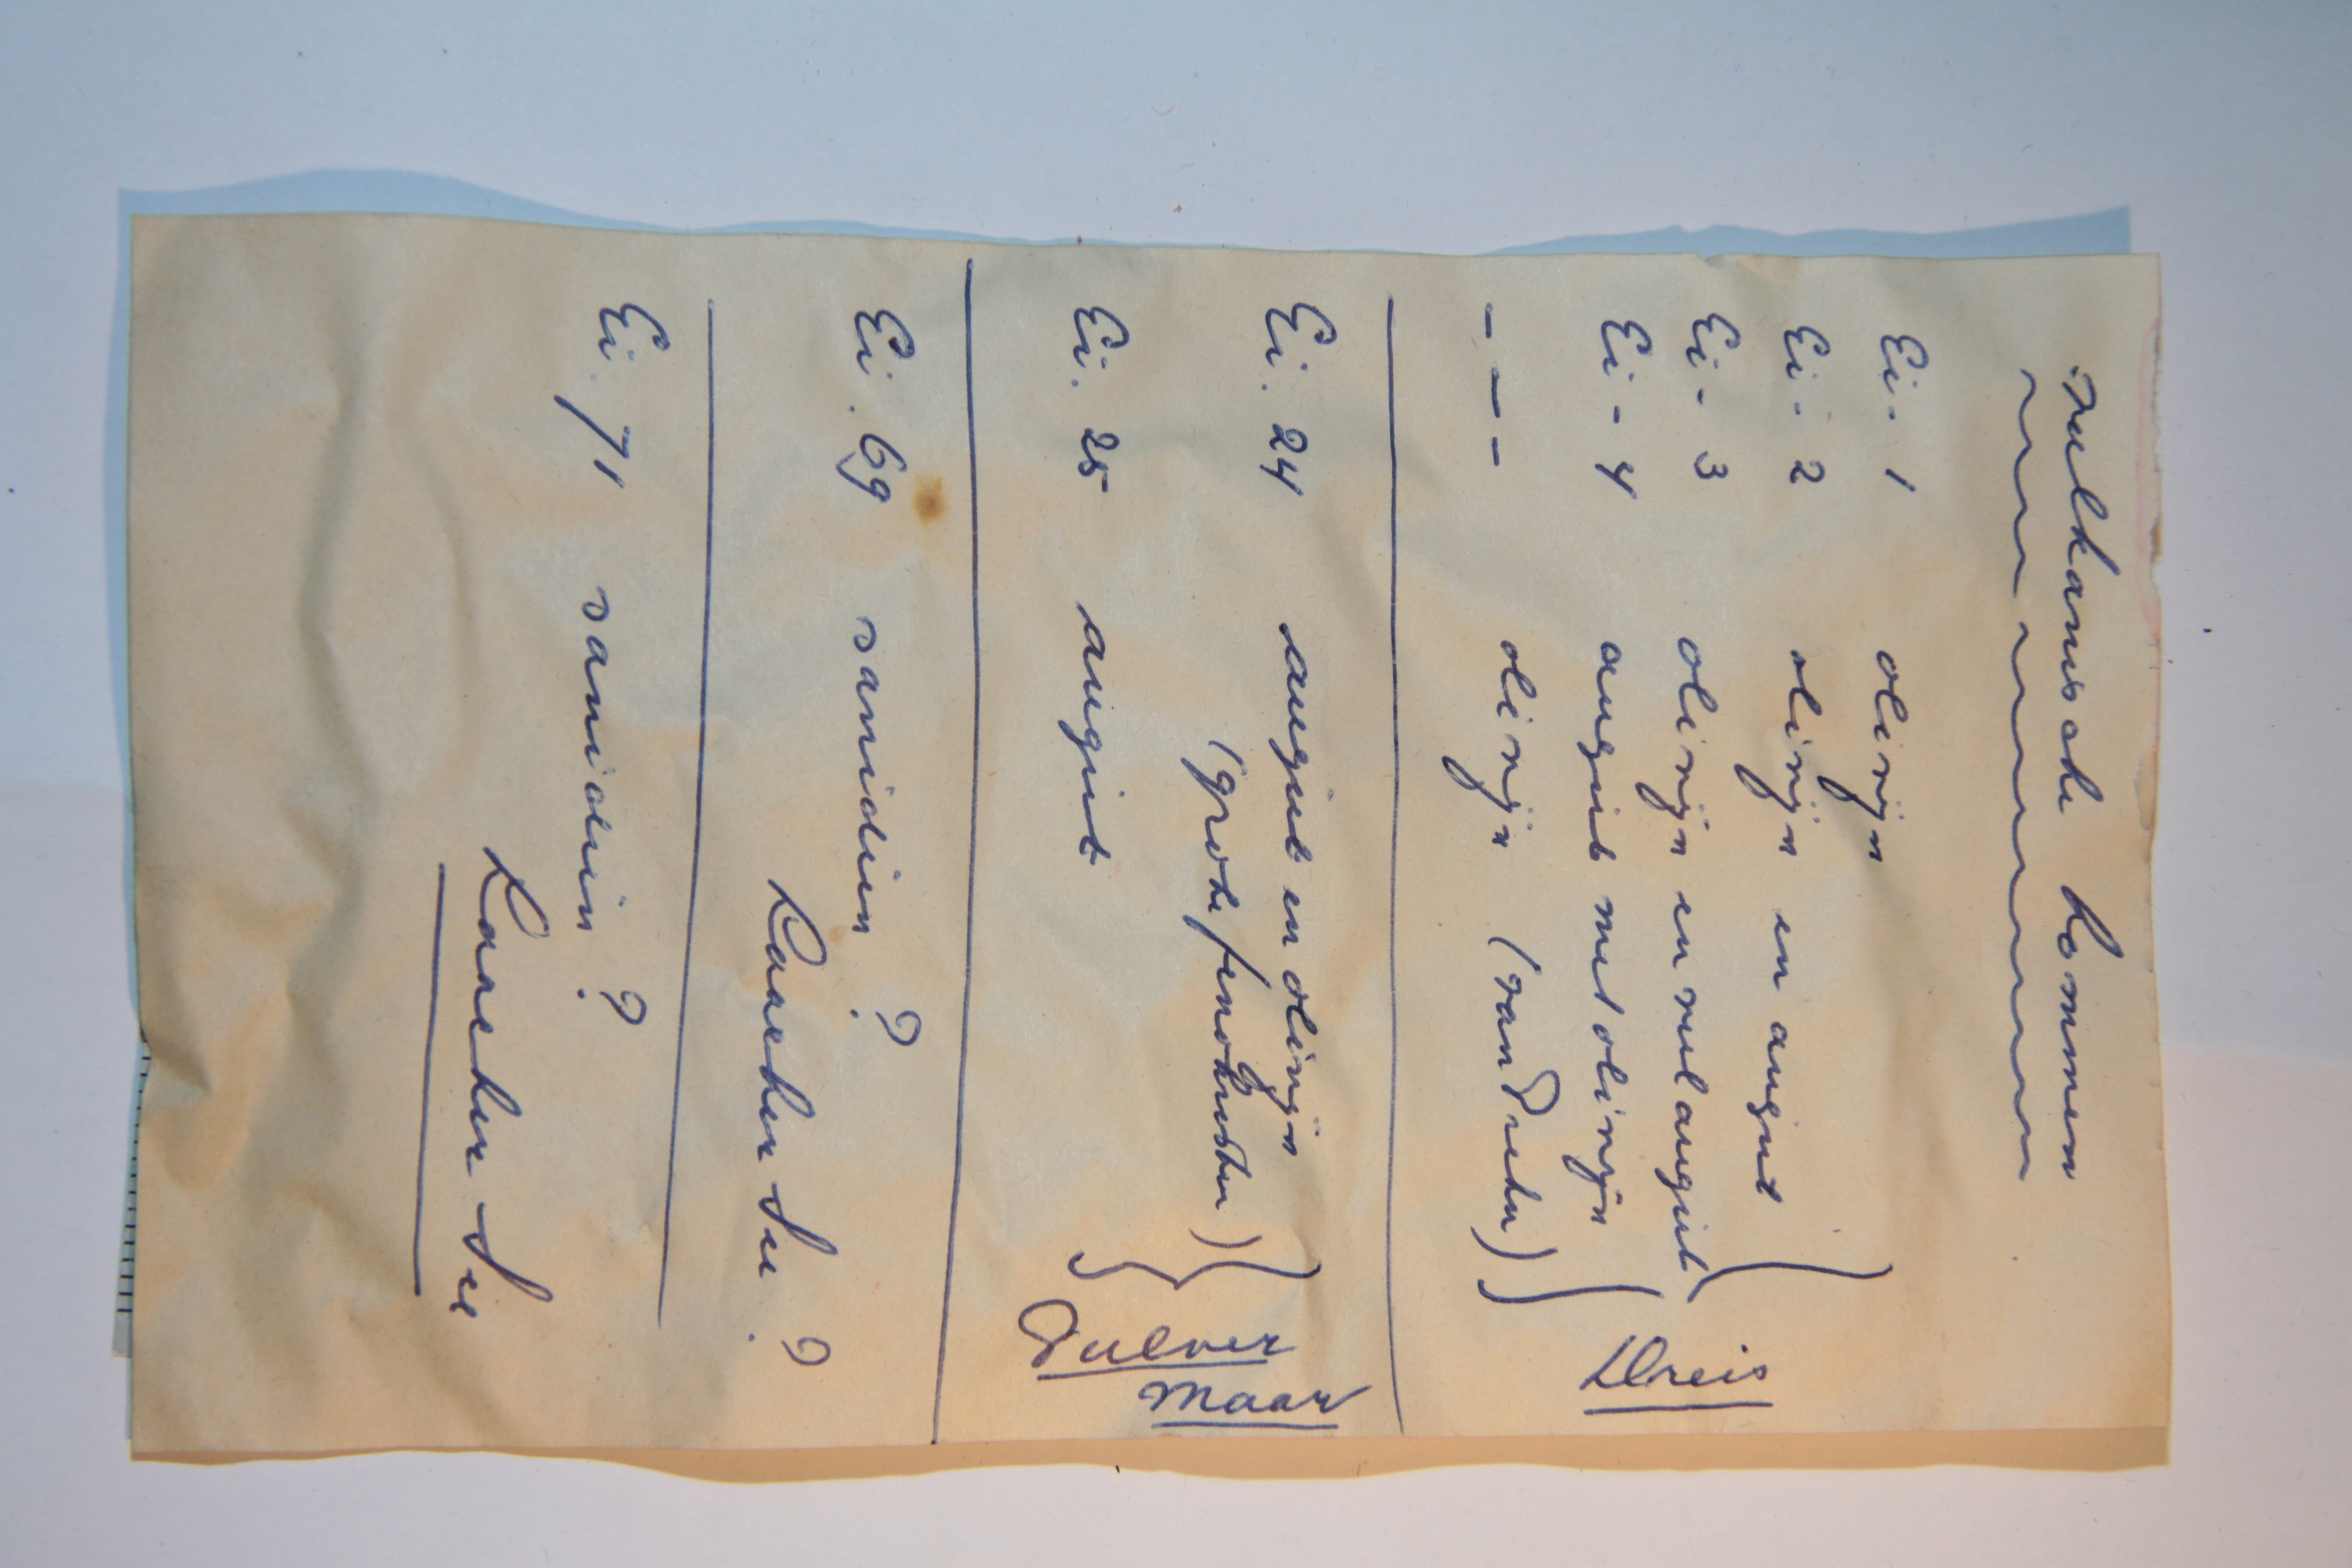 Vulkanische bommen
Ei - 1 olivijn
Ei - 2 olivijn en augiet
Ei - 3 olivijn en veel augiet
Ei - 4 augiet met olivijn
- - - olivijn (van Pieter)
Dreis
Ei. 24 augiet en olivijn
(grote fenokristen)
Ei. 25 augiet
Pulver
maar
Ei. 69 sanidien ?
Laacher See. ?
Ei. 71 sanidien ?
Laacher See